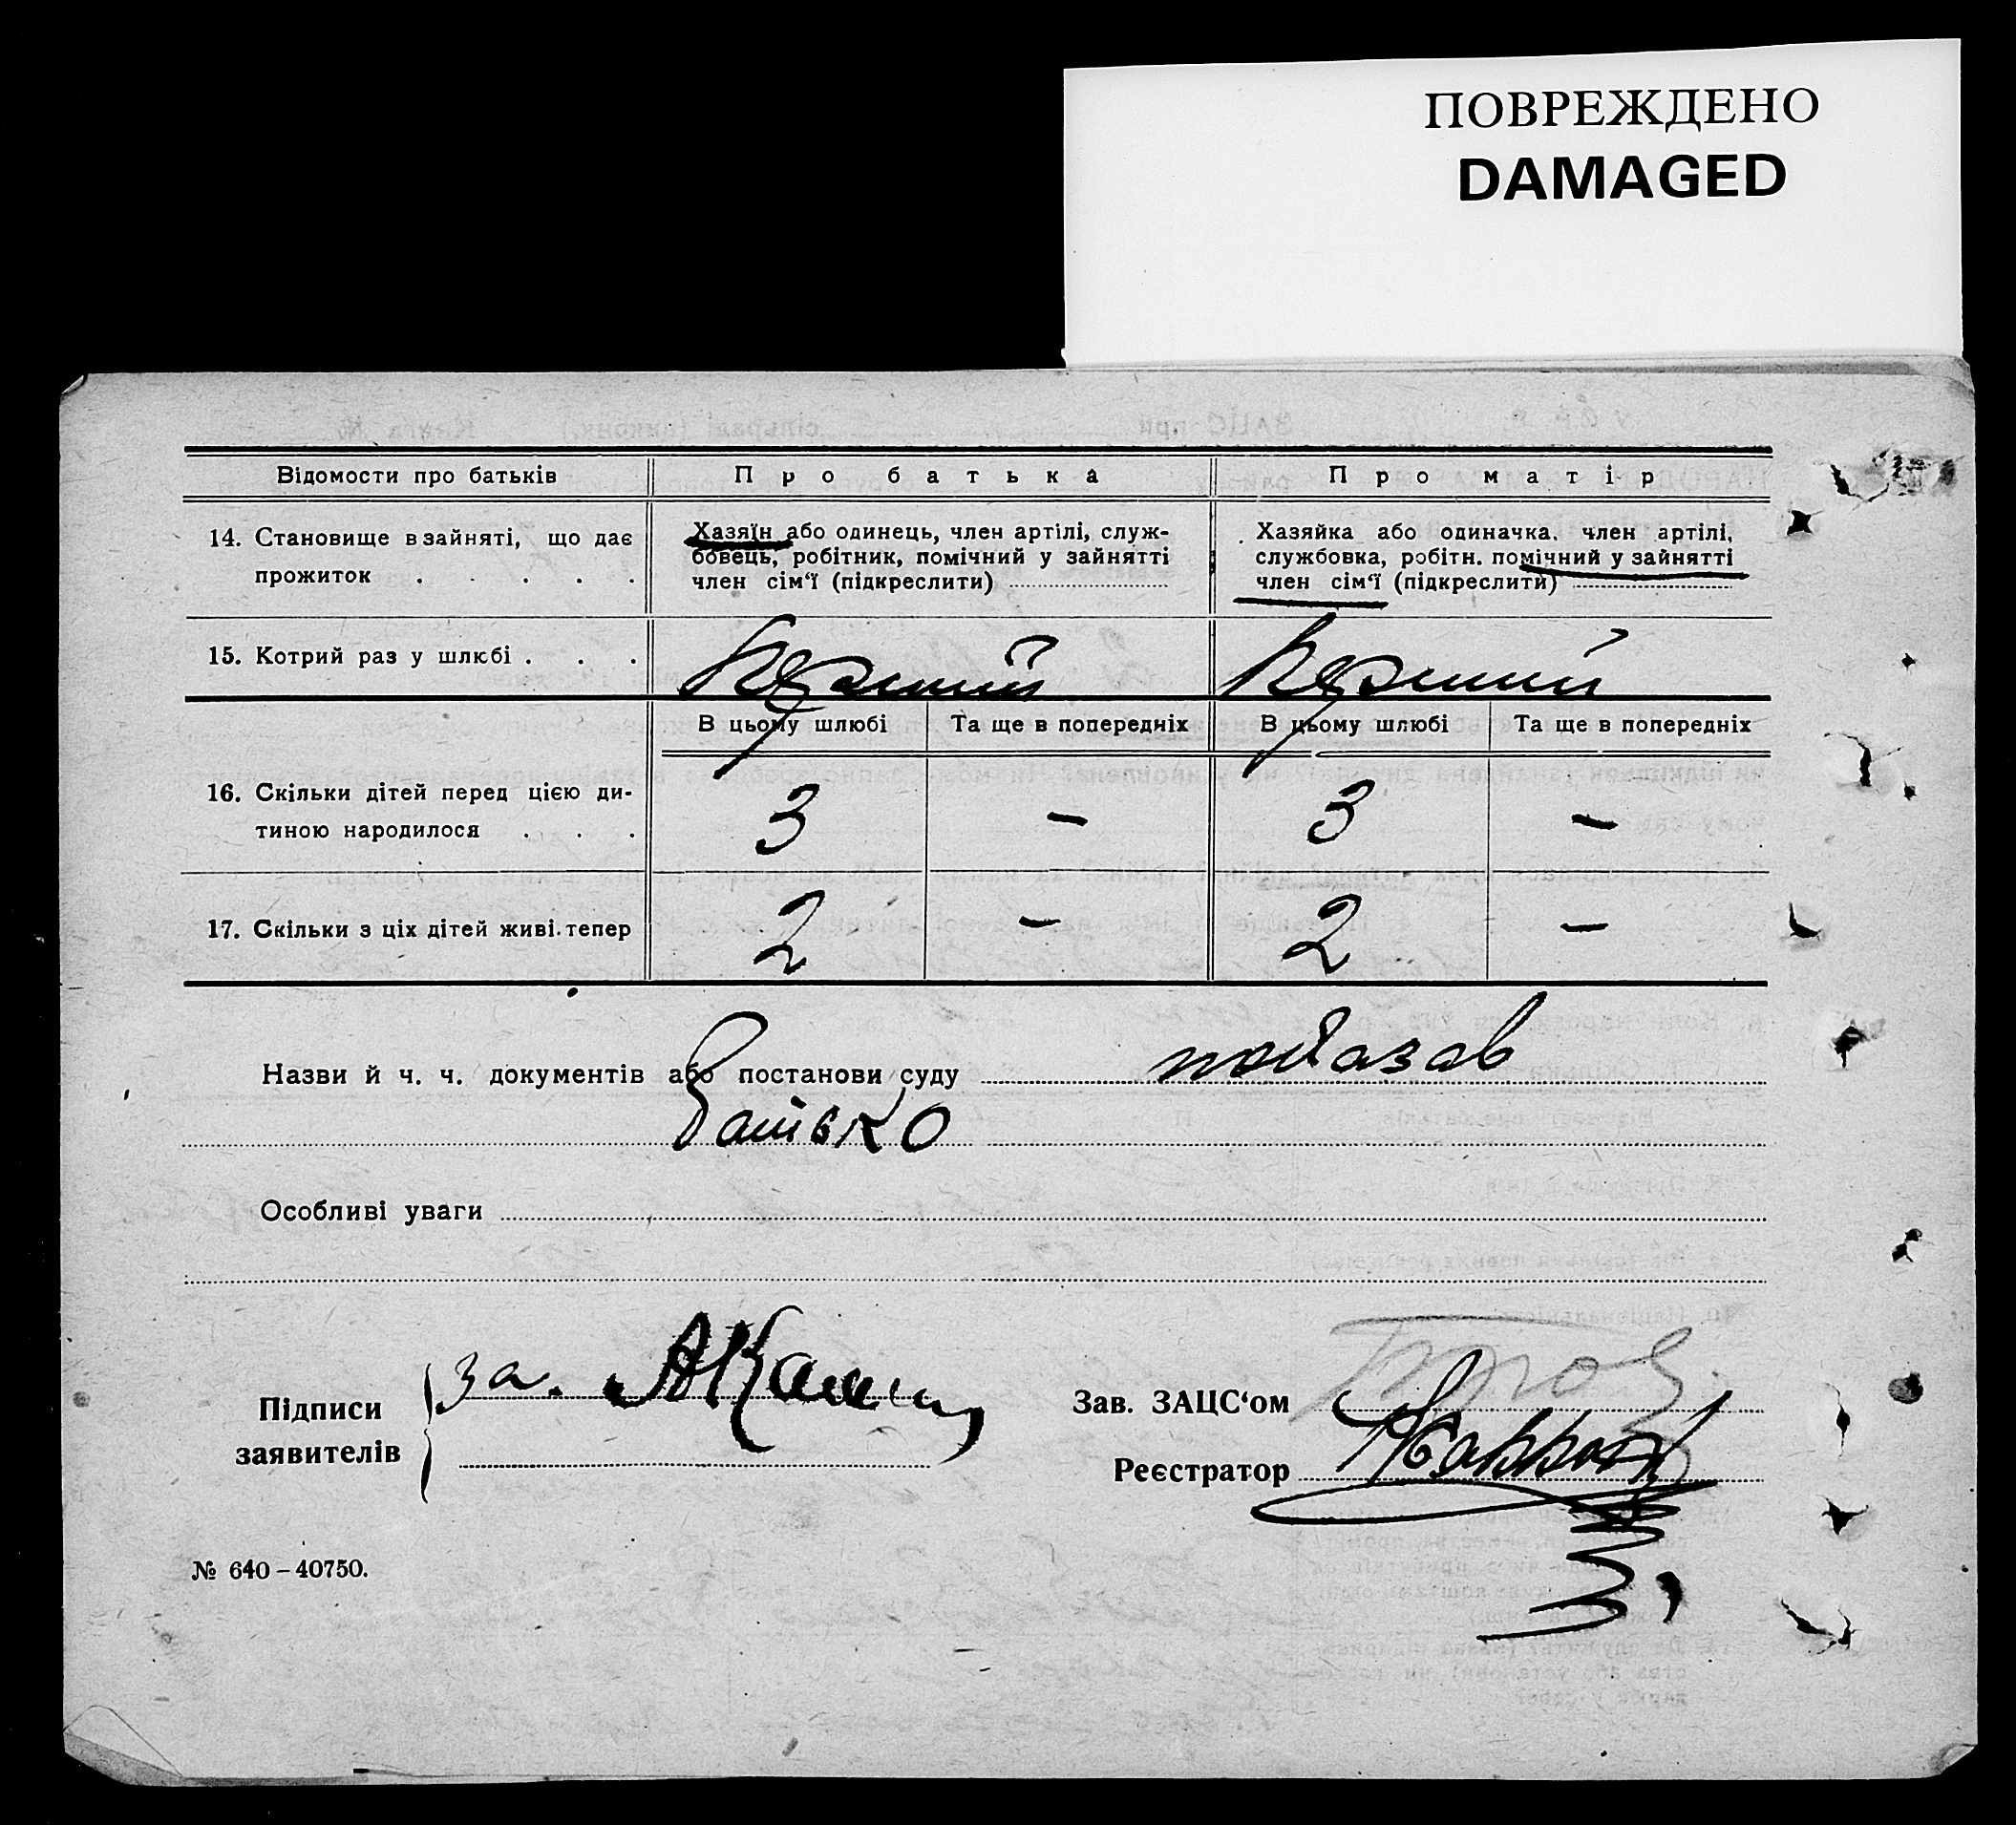 ПОВРЕЖДЕНО
DAMAGED
Відомости про батьків
Про батька
Про матір
14. Становище в зайняті, що дає прожиток . . . . .
Хазяїн або одинець, член артілі, служ-
бовець, робітник, помічний у зайнятті
член сім‘ї (підкреслити)
Хазяйка або одиначка, член артілі,
службовка, робітн. помічний у зайнятті
член сім‘ї (підкреслити)
15. Котрий раз у шлюбі . . .
Перший
Перший
В цьому шлюбі
Та ще в попередніх
В цьому шлюбі
Та ще в попередніх
16. Скільки дітей перед цією ди-
тиною народилося . . .
3
—
3
—
17. Скільки з ціх дітей живі тепер
2
—
2
—
Назви й ч. ч. документів або постанови суду показав
батько
Особливі уваги
Підписи
заявителів
за.
Зав. ЗАЦС‘ом
Реєстратор
№ 640 – 40750.